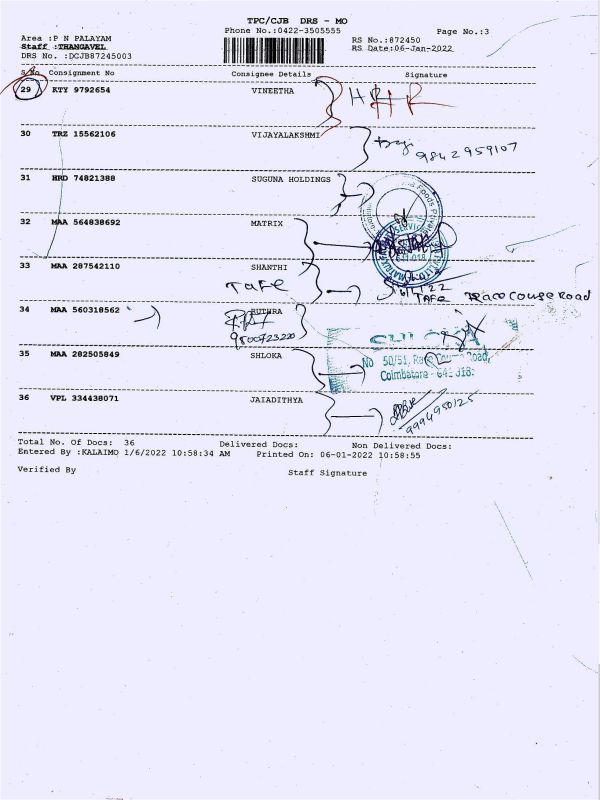 TPC/CJB DRS - MO
Phone No.:0422-3505555 Page No.:3
Area :P N PALAYAM RS No.:872450
Staff :THANGAVEL RS Date:06-Jan-2022
DRS No. :DCJB87245003
S/No Consignment No Consignee Details Signature
29 KTY 9792654 VINEETHA
30 TRZ 15562106 VIJAYALAKSHMI
9842959107
31 HRD 74821388 SUGUNA HOLDINGS
32 MAA 564838692 MATRIX
641-018
33 MAA 287542110 SHANTHI
TAFE 6/1/22
TAFE Race Course Road
34 MAA 560318562 RUTHRA
35 MAA 282505849 SHLOKA
No 50/51, Race Course Road,
Coimbatore - 641 018.
36 VPL 334438071 JAIADITHYA
9994950125
Total No. Of Docs: 36 Delivered Docs: Non Delivered Docs:
Entered By :KALAIMO 1/6/2022 10:58:34 AM Printed On: 06-01-2022 10:58:55
Verified By Staff Signature